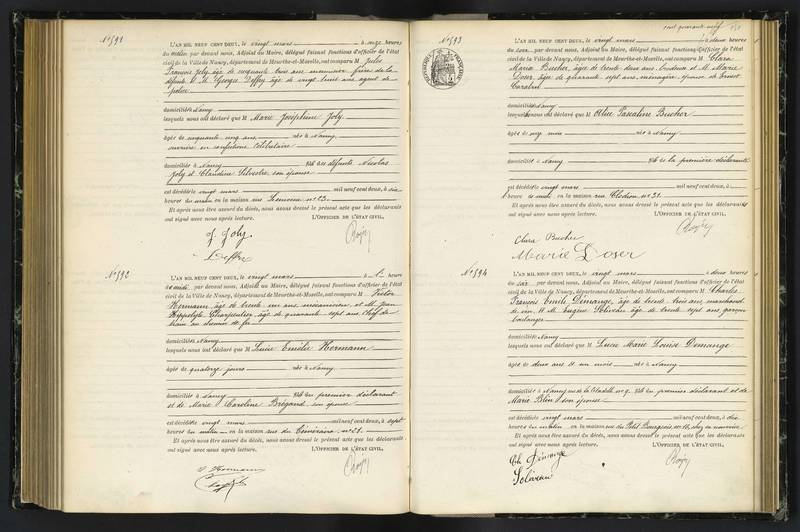 N° 591
L'AN MIL NEUF CENT DEUX, le vingt mars à onze heures
du matin par devant nous, Adjoint au Maire, délégué faisant fonctions d'officier de l'état
civil de la Ville de Nancy, département de Meurthe-et-Moselle, ont comparu M Jules
François Joly, âgé de cinquante trois ans, frère de la
défunte et M. Georges Deffry, âgé de vingt huit ans, agent de
police
domiciliés à Nancy
lesquels nous ont déclaré que M Marie Joséphine Joly
âgée de cinquante cinq ans née à Nancy
ouvrière en confections célibataire
domiciliée à Nancy fille des défunts Nicolas
Joly et Claudine Silvestre, son épouse
est décédée le vingt mars mil neuf cent deux, à six
heures du matin en la maison rue n° 23
Et après nous être assuré du décès, nous avons dressé le présent acte que les déclarants
ont signé avec nous après lecture. L'OFFICIER DE L'ÉTAT CIVIL,
J. Joly
N° 592
L'AN MIL NEUF CENT DEUX, le vingt mars à heure
par devant nous, Adjoint au Maire, délégué faisant fonctions d'officier de l'état
civil de la Ville de Nancy, département de Meurthe-et-Moselle, ont comparu M Victor
Hermann, âgé de trente un ans, mécanicien et M. Jean
Hippolyte Charpentier, âgé de quarante sept ans, chef de
train au chemin de fer
domiciliés à Nancy
lesquels nous ont déclaré que M Lucie Emilie Hermann
âgée de quatorze jours née à Nancy
domiciliée à Nancy fille du premier déclarant
et de Marie Caroline Brégard, son épouse
est décédée le vingt mars mil neuf cent deux, à sept
heures du matin en la maison rue du Téméraire, n° 21
Et après nous être assuré du décès, nous avons dressé le présent acte que les déclarants
ont signé avec nous après lecture. L'OFFICIER DE L'ÉTAT CIVIL,
V. Hermann
cent quarante-neuf
N° 593
RÉPUBLIQUE FRANÇAISE
L'AN MIL NEUF CENT DEUX, le vingt mars à deux heures
du soir par devant nous, Adjoint au Maire, délégué faisant fonctions d'officier de l'état
civil de la Ville de Nancy, département de Meurthe-et-Moselle, ont comparu M Clara
Maria Bucher, âgée de trente deux ans, et M. Marie
Doser, âgée de quarante sept ans, ménagère, épouse de Ernest
domiciliés à Nancy
lesquelles nous ont déclaré que M Alice Pascaline Bucher
âgée de onze mois née à Nancy
domiciliée à Nancy fille de la première déclarante
est décédée le vingt mars mil neuf cent deux, à
heure en la maison rue Clodion n° 31
Et après nous être assuré du décès, nous avons dressé le présent acte que les déclarants
ont signé avec nous après lecture. L'OFFICIER DE L'ÉTAT CIVIL,
Clara Bucher
Marie Doser
N° 594
L'AN MIL NEUF CENT DEUX, le vingt mars à deux heures
du soir par devant nous, Adjoint au Maire, délégué faisant fonctions d'officier de l'état
civil de la Ville de Nancy, département de Meurthe-et-Moselle, ont comparu M Charles
François Emile Démange, âgé de trente trois ans, marchand
de vin et M. Eugène Soliveau âgé de trente sept ans, garçon
boulanger
domiciliés à Nancy
lesquels nous ont déclaré que M Lucie Marie Louise Demange
âgée de deux ans et un mois née à Nancy
domiciliée à Nancy rue de la Citadelle n° 9, fille du premier déclarant et de
Marie Blin son épouse
est décédée le vingt mars mil neuf cent deux, à dix
heures du matin en la maison rue du Petit Bourgeois, n° 11, chez sa nourrice
Et après nous être assuré du décès, nous avons dressé le présent acte que les déclarants
ont signé avec nous après lecture. L'OFFICIER DE L'ÉTAT CIVIL,
Démange
Soliveau